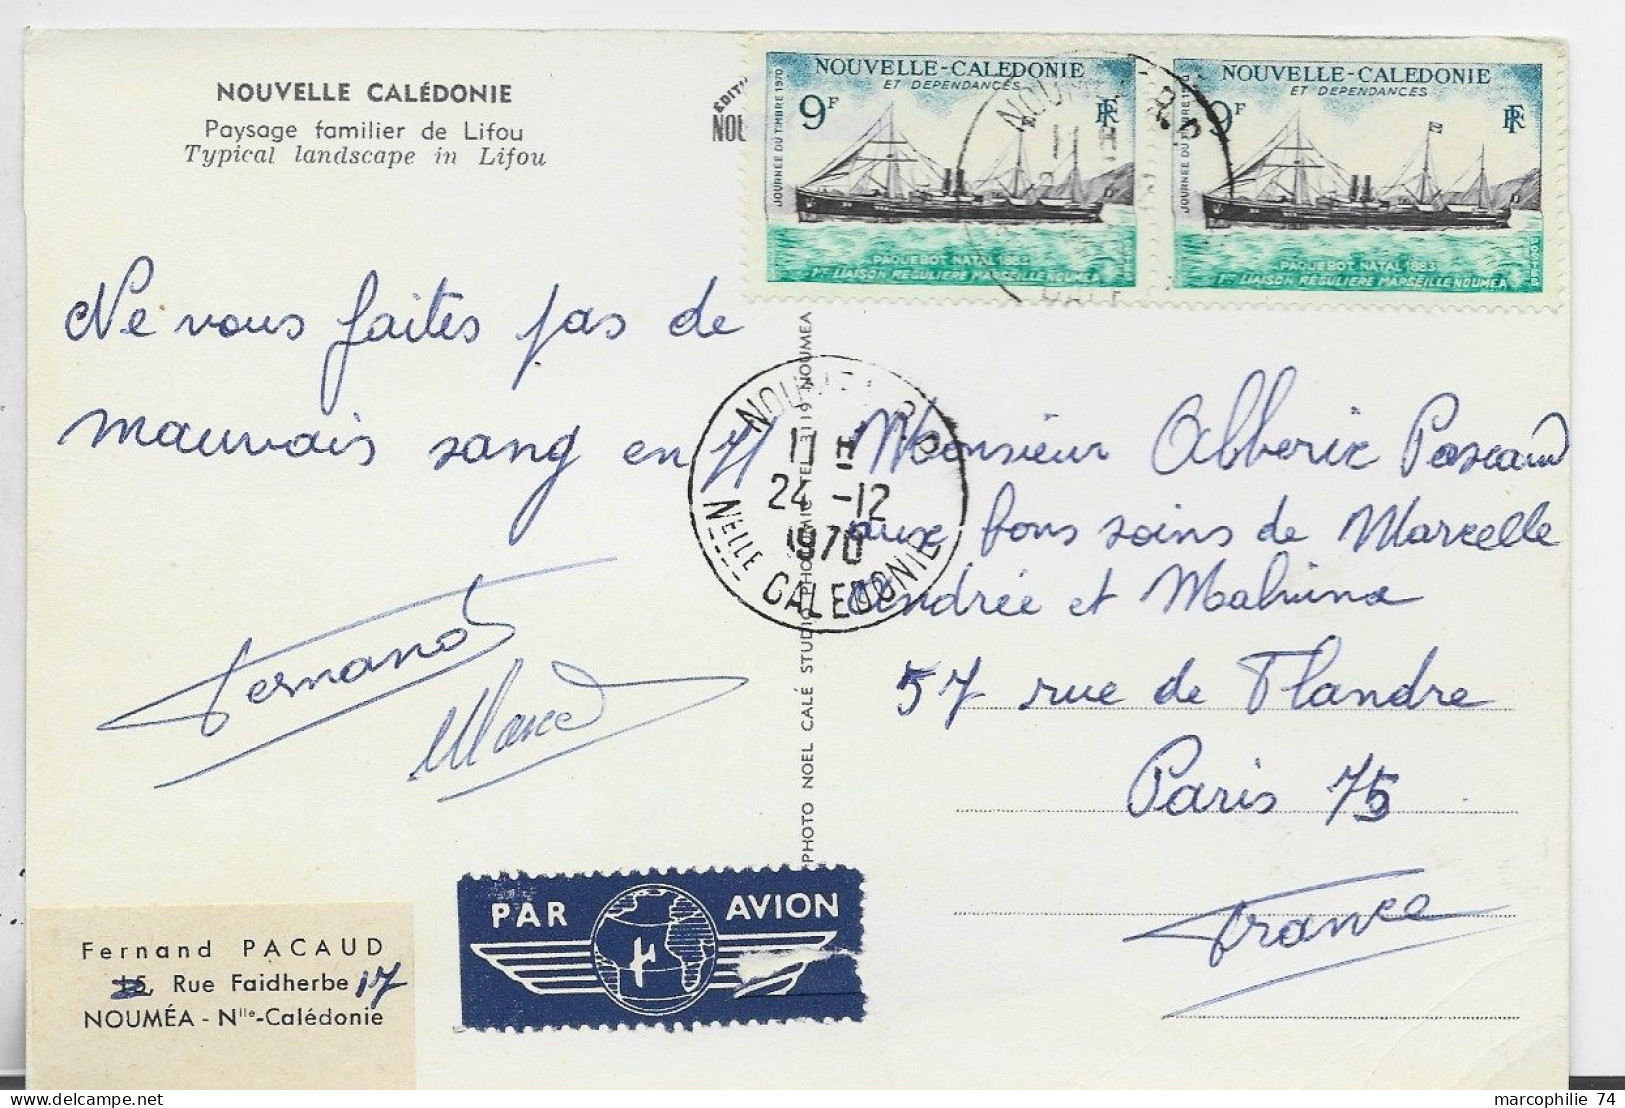 NOUVELLE CALÉDONIE
Paysage familier de Lifou
Typical landscape in Lifou
EDIT
NOU
NOUVELLE-CALEDONIE
ET DEPENDANCES
9F
RF
JOURNEE DU TIMBRE 1970
PAQUEBOT NATAL 1883
1re LIAISON REGULIERE MARSEILLE NOUMEA
NOUVELLE-CALEDONIE
ET DEPENDANCES
9F
RF
JOURNEE DU TIMBRE 1970
PAQUEBOT NATAL 1883
1re LIAISON REGULIERE MARSEILLE NOUMEA
Ne vous faites pas de
mauvais sang en 71
Fernand
Marcel
NOUMEA R.P.
11 H
24 -12
1970
NELLE CALEDONIE
PHOTO NOEL CALÉ STUDIO PHOMIC TEL. 3119 NOUMEA
Monsieur Alberic Pascaud
aux bons soins de Marcelle
Andrée et Malvina
57 rue de Flandre
Paris 75
France
PAR AVION
Fernand PACAUD
15, Rue Faidherbe 17
NOUMÉA - Nlle-Calédonie
marcophilie 74